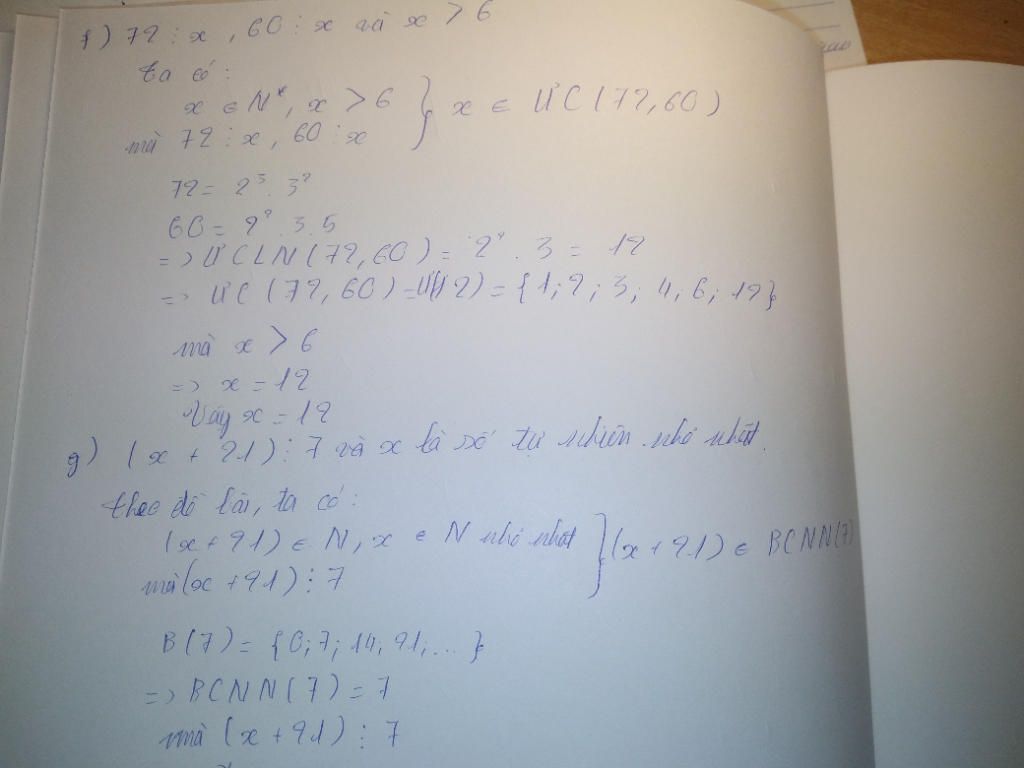 f) 72 ⋮ x , 60 ⋮ x và x > 6
ta có:
x ∈ N*, x > 6 } x ∈ ƯC(72,60)
mà 72 ⋮ x, 60 ⋮ x
72 = 2³ . 3²
60 = 2² . 3 . 5
=> ƯCLN(72,60) = 2² . 3 = 12
=> ƯC(72,60) = Ư(12) = {1; 2; 3; 4; 6; 12}
mà x > 6
=> x = 12
Vậy x = 12
g) (x + 21) ⋮ 7 và x là số tự nhiên nhỏ nhất.
theo đề bài, ta có:
(x + 21) ∈ N, x ∈ N nhỏ nhất } (x + 21) ∈ BCNN(7)
mà (x + 21) ⋮ 7
B(7) = {0; 7; 14; 21; ...}
=> BCNN(7) = 7
mà (x + 21) ⋮ 7